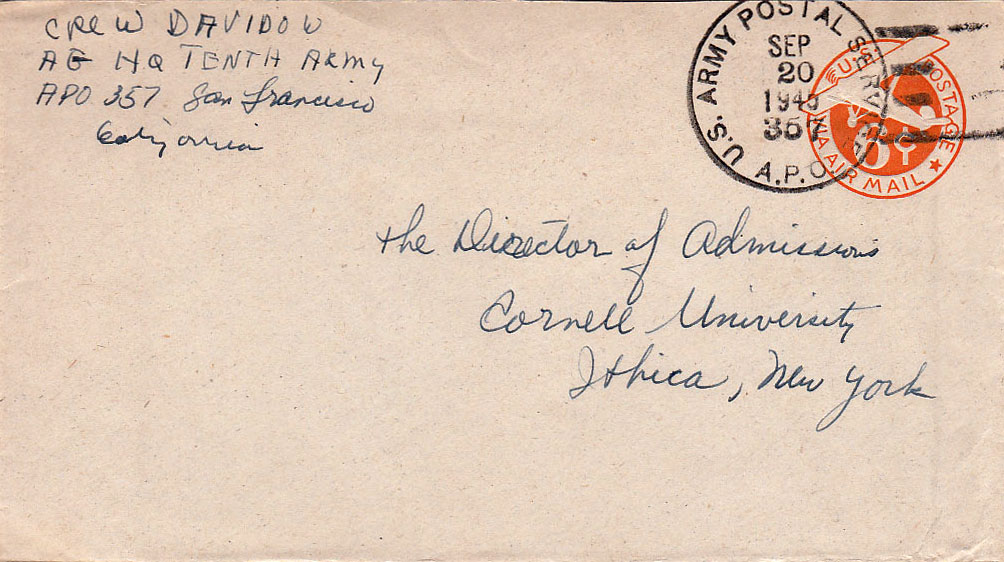 CPL W DAVIDOW
AG HQ TENTH ARMY
APO 357 San Francisco
California
U.S. ARMY POSTAL SERVICE
SEP
20
1945
357
A.P.O.
U.S. POSTAGE
6¢
VIA AIR MAIL
the Director of Admissions
Cornell University
Ithica, New York